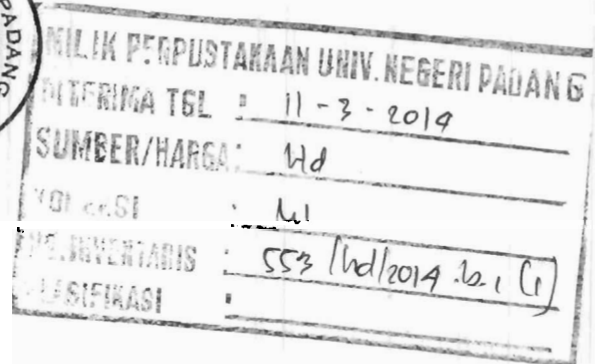 PADANG
MILIK PERPUSTAKAAN UNIV. NEGERI PADANG
DITERIMA TGL : 11-3-2014
SUMBER/HARGA : Hd
KOLEKSI : kl
NO. INVENTARIS : 553/hd/2014.b.1 (1)
KLASIFIKASI :